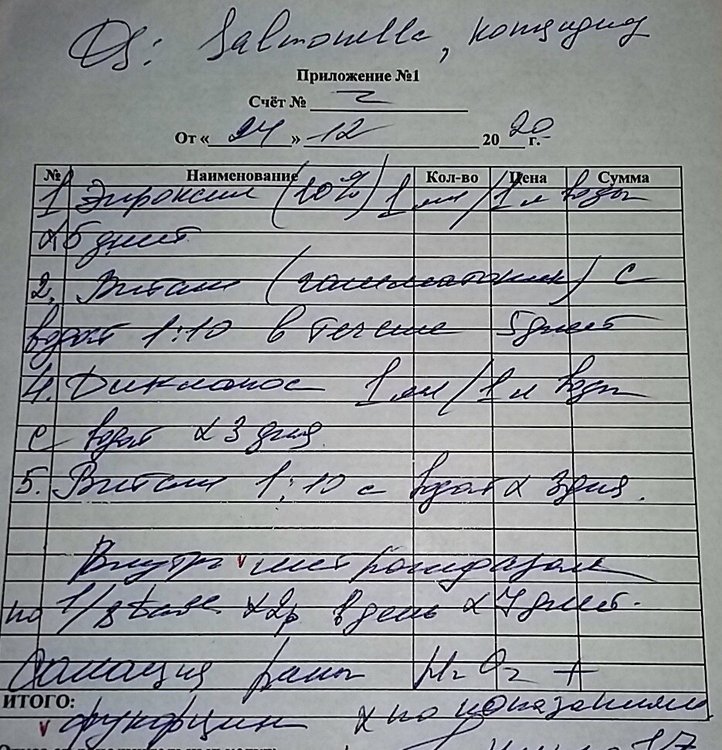 Ds: Salmonella, кокцидиоз
Приложение №1
Счёт №
От «24» 12 2020 г.
№ Наименование Кол-во Цена Сумма
1 Энроксил (10%) 1 мл/1 л воды
x 5 дней
2. Витам (гамматоник) с
водой 1:10 в течение 5 дней
4. Диклакокс 1 мл/1 л воды
с водой x 3 дня
5. Витам 1:10 с водой x 3 дня.
Внутрь метронидазол
по 1/8 табл x 2р в день x 7 дней.
Санация раны H2O2 +
ИТОГО:
фукорцин x по показаниям